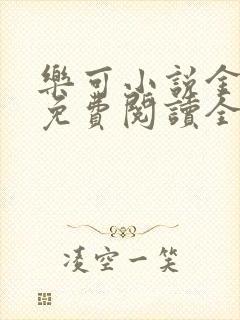 樂可小說全
免費閱讀全
凌空一笑